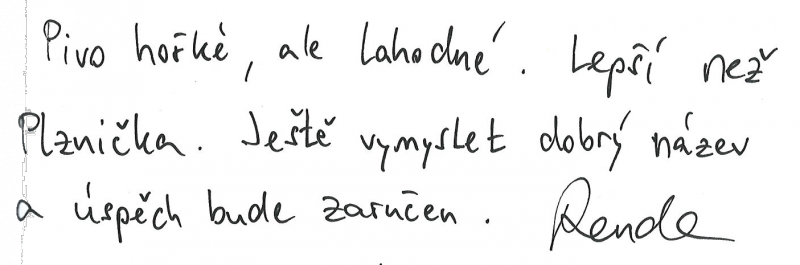 Pivo hořké, ale lahodné. Lepší než
Plznička. Ještě vymyslet dobrý název
a úspěch bude zaručen. Renda